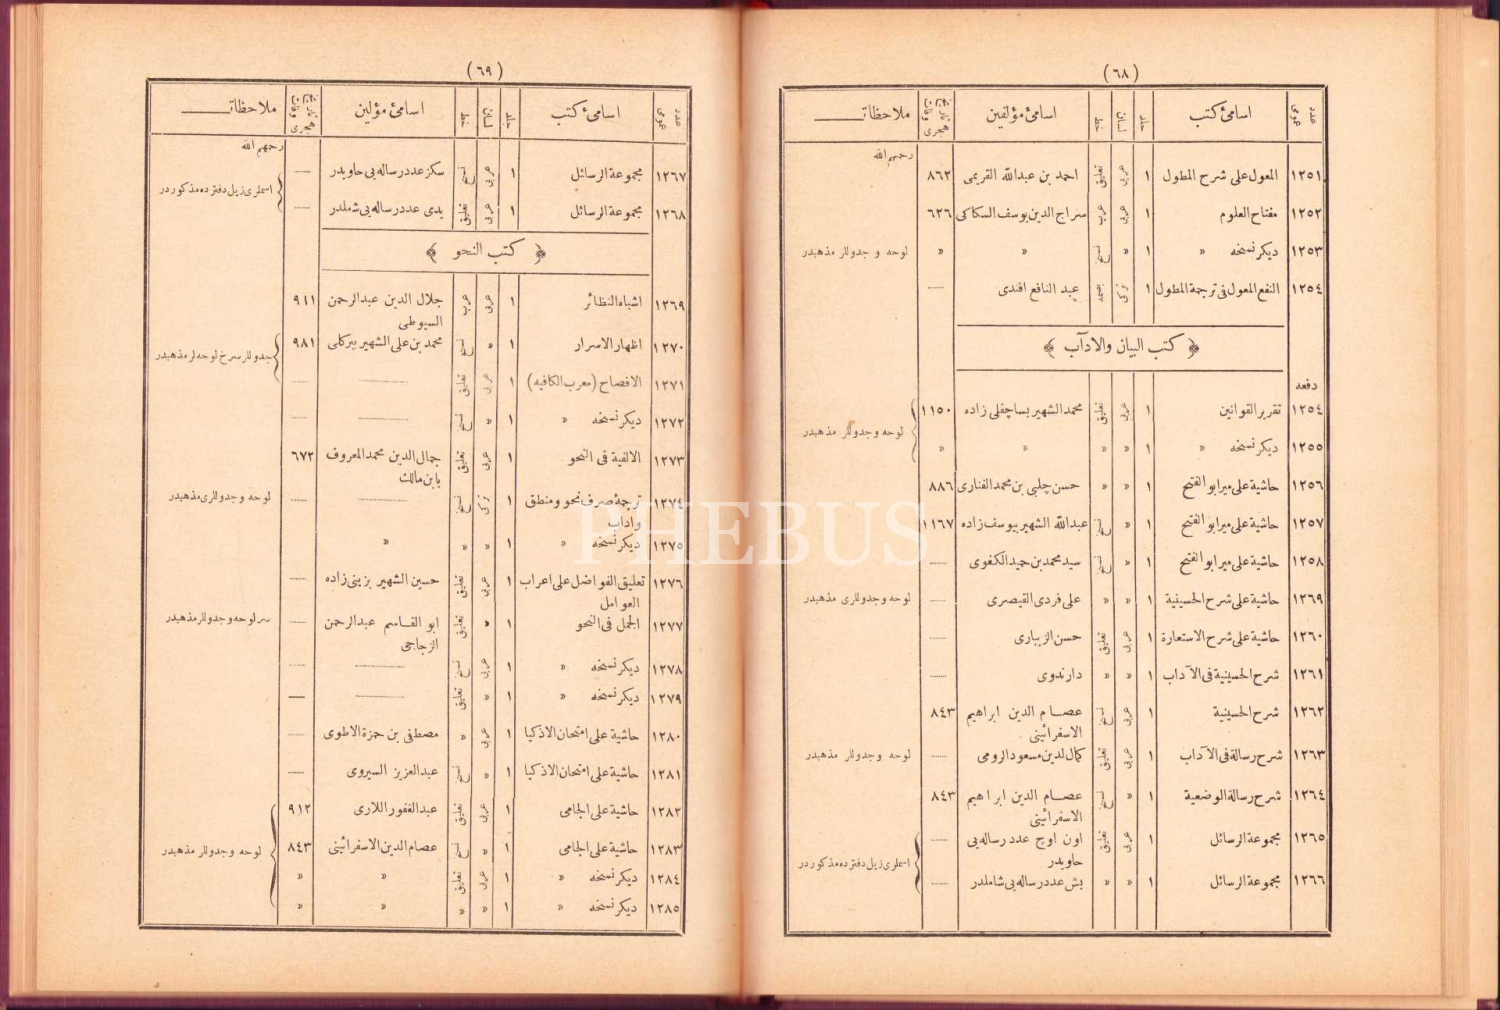 (٦٨)
عدد عمومی	اسامئ کتب	جلد	لسان	خط	اسامئ مؤلفین	تاریخ وفات هجری	ملاحظات
رحمهم الله
١٢٥١	المعول علی شرح المطول	١	عربی	تعلیق	احمد بن عبدالله القریمی	٨٦٢
١٢٥٢	مفتاح العلوم	١	عربی	عرب	سراج الدین یوسف السکاکی	٦٢٦
١٢٥٣	دیکر نسخه »	١	»	نسخ	»	»	لوحه و جدوللر مذهبدر
١٢٥٤	النفع المعول فی ترجمة المطول	١	ترکی	بصمه	عبد النافع افندی	—
﴿ کتب البیان والاداب ﴾
دفعه
١٢٥٤	تقریر القوانین	١	عربی	تعلیق	محمد الشهیر بساچقلی زاده	١١٥٠
لوحه و جدوللر مذهبدر
١٢٥٥	دیکر نسخه »	١	»	»	»	»
١٢٥٦	حاشیة علی میر ابو الفتح	١	»	»	حسن چلبی بن محمد الفناری	٨٨٦
١٢٥٧	حاشیة علی میر ابو الفتح	١	»	نسخ	عبدالله الشهیر بیوسف زاده	١١٦٧
١٢٥٨	حاشیة علی میر ابو الفتح	١	»	نسخ	سید محمد بن حمید الکفوی	—
١٢٦٩	حاشیة علی شرح الحسینیة	١	»	»	علی فردی القیصری	—	لوحه و جدوللری مذهبدر
١٢٦٠	حاشیة علی شرح الاستعارة	١	عربی	تعلیق	حسن الزیباری	—
١٢٦١	شرح الحسینیة فی الآداب	١	»	»	دارندوی	—
١٢٦٢	شرح الحسینیة	١	عربی	نسخ	عصام الدین ابراهیم	٨٤٣
الاسفرائینی
١٢٦٣	شرح رسالة فی الآداب	١	عربی	تعلیق	کمال لدین مسعود الرومی	—	لوحه و جدوللر مذهبدر
١٢٦٤	شرح رسالة الوضعیة	١	»	نسخ	عصام الدین ابراهیم	٨٤٣
الاسفرائینی
١٢٦٥	مجموعة الرسائل	١	عربی	تعلیق	اون اوچ عدد رساله یی	—
حاویدر
اسملری زیل دفترده مذکوردر
١٢٦٦	مجموعة الرسائل	١	»	»	بش عدد رساله یی شاملدر	—
(٦٩)
عدد عمومی	اسامئ کتب	جلد	لسان	خط	اسامئ مؤلین	تاریخ وفات هجری	ملاحظات
رحمهم الله
١٢٦٧	مجموعة الرسائل	١	عربی	نسخ	سکز عدد رساله یی حاویدر	—
اسملری زیل دفترده مذکوردر
١٢٦٨	مجموعة الرسائل	١	عربی	تعلیق	یدی عدد رساله یی شملدر	—
﴿ کتب النحو ﴾
١٢٦٩	اشباه النظائر	١	عربی	عرب	جلال الدین عبدالرحمن	٩١١
السیوطی
١٢٧٠	اظهار الاسرار	١	»	نسخ	محمد بن علی الشهیر ببرکلی	٩٨١
جدوللر سرخ لوحه لر مذهبدر
١٢٧١	الافصاح (معرب الکافیه)	١	عربی	تعلیق	—	—
١٢٧٢	دیکر نسخه »	١	»	نسخ	—	—
١٢٧٣	الالفیة فی النحو	١	عربی	تعلیق	جمال الدین محمد المعروف	٦٧٢
بابن مالک
١٢٧٤	ترجمة صرف نحو و منطق	١	ترکی	نسخ	—	—	لوحه و جدوللری مذهبدر
واداب
١٢٧٥	دیکر نسخه »	١	»	»	»
١٢٧٦	تعلیق الفواضل علی اعراب	١	عربی	تعلیق	حسین الشهیر بزینی زاده	—
العوامل
١٢٧٧	الجمل فی النحو	١	»	تعلیق	ابو القاسم عبدالرحمن	—	سر لوحه و جدوللر مذهبدر
الزجاجی
١٢٧٨	دیکر نسخه »	١	عربی	نسخ	—	—
١٢٧٩	دیکر نسخه »	١	»	تعلیق	—	—
١٢٨٠	حاشیة علی امتحان الاذکیا	١	عربی	»	مصطفی بن حمزة الاطوی	—
١٢٨١	حاشیة علی امتحان الاذکیا	١	»	نسخ	عبدالعزیز السیروی	—
١٢٨٢	حاشیة علی الجامی	١	عربی	تعلیق	عبدالغفور اللاری	٩١٢
١٢٨٣	حاشیة علی الجامی	١	»	نسخ	عصام الدین الاسفرائینی	٨٤٣
لوحه و جدوللر مذهبدر
١٢٨٤	دیکر نسخه »	١	عربی	تعلیق	»	»
١٢٨٥	دیکر نسخه »	١	»	»	»	»
PHEBUS